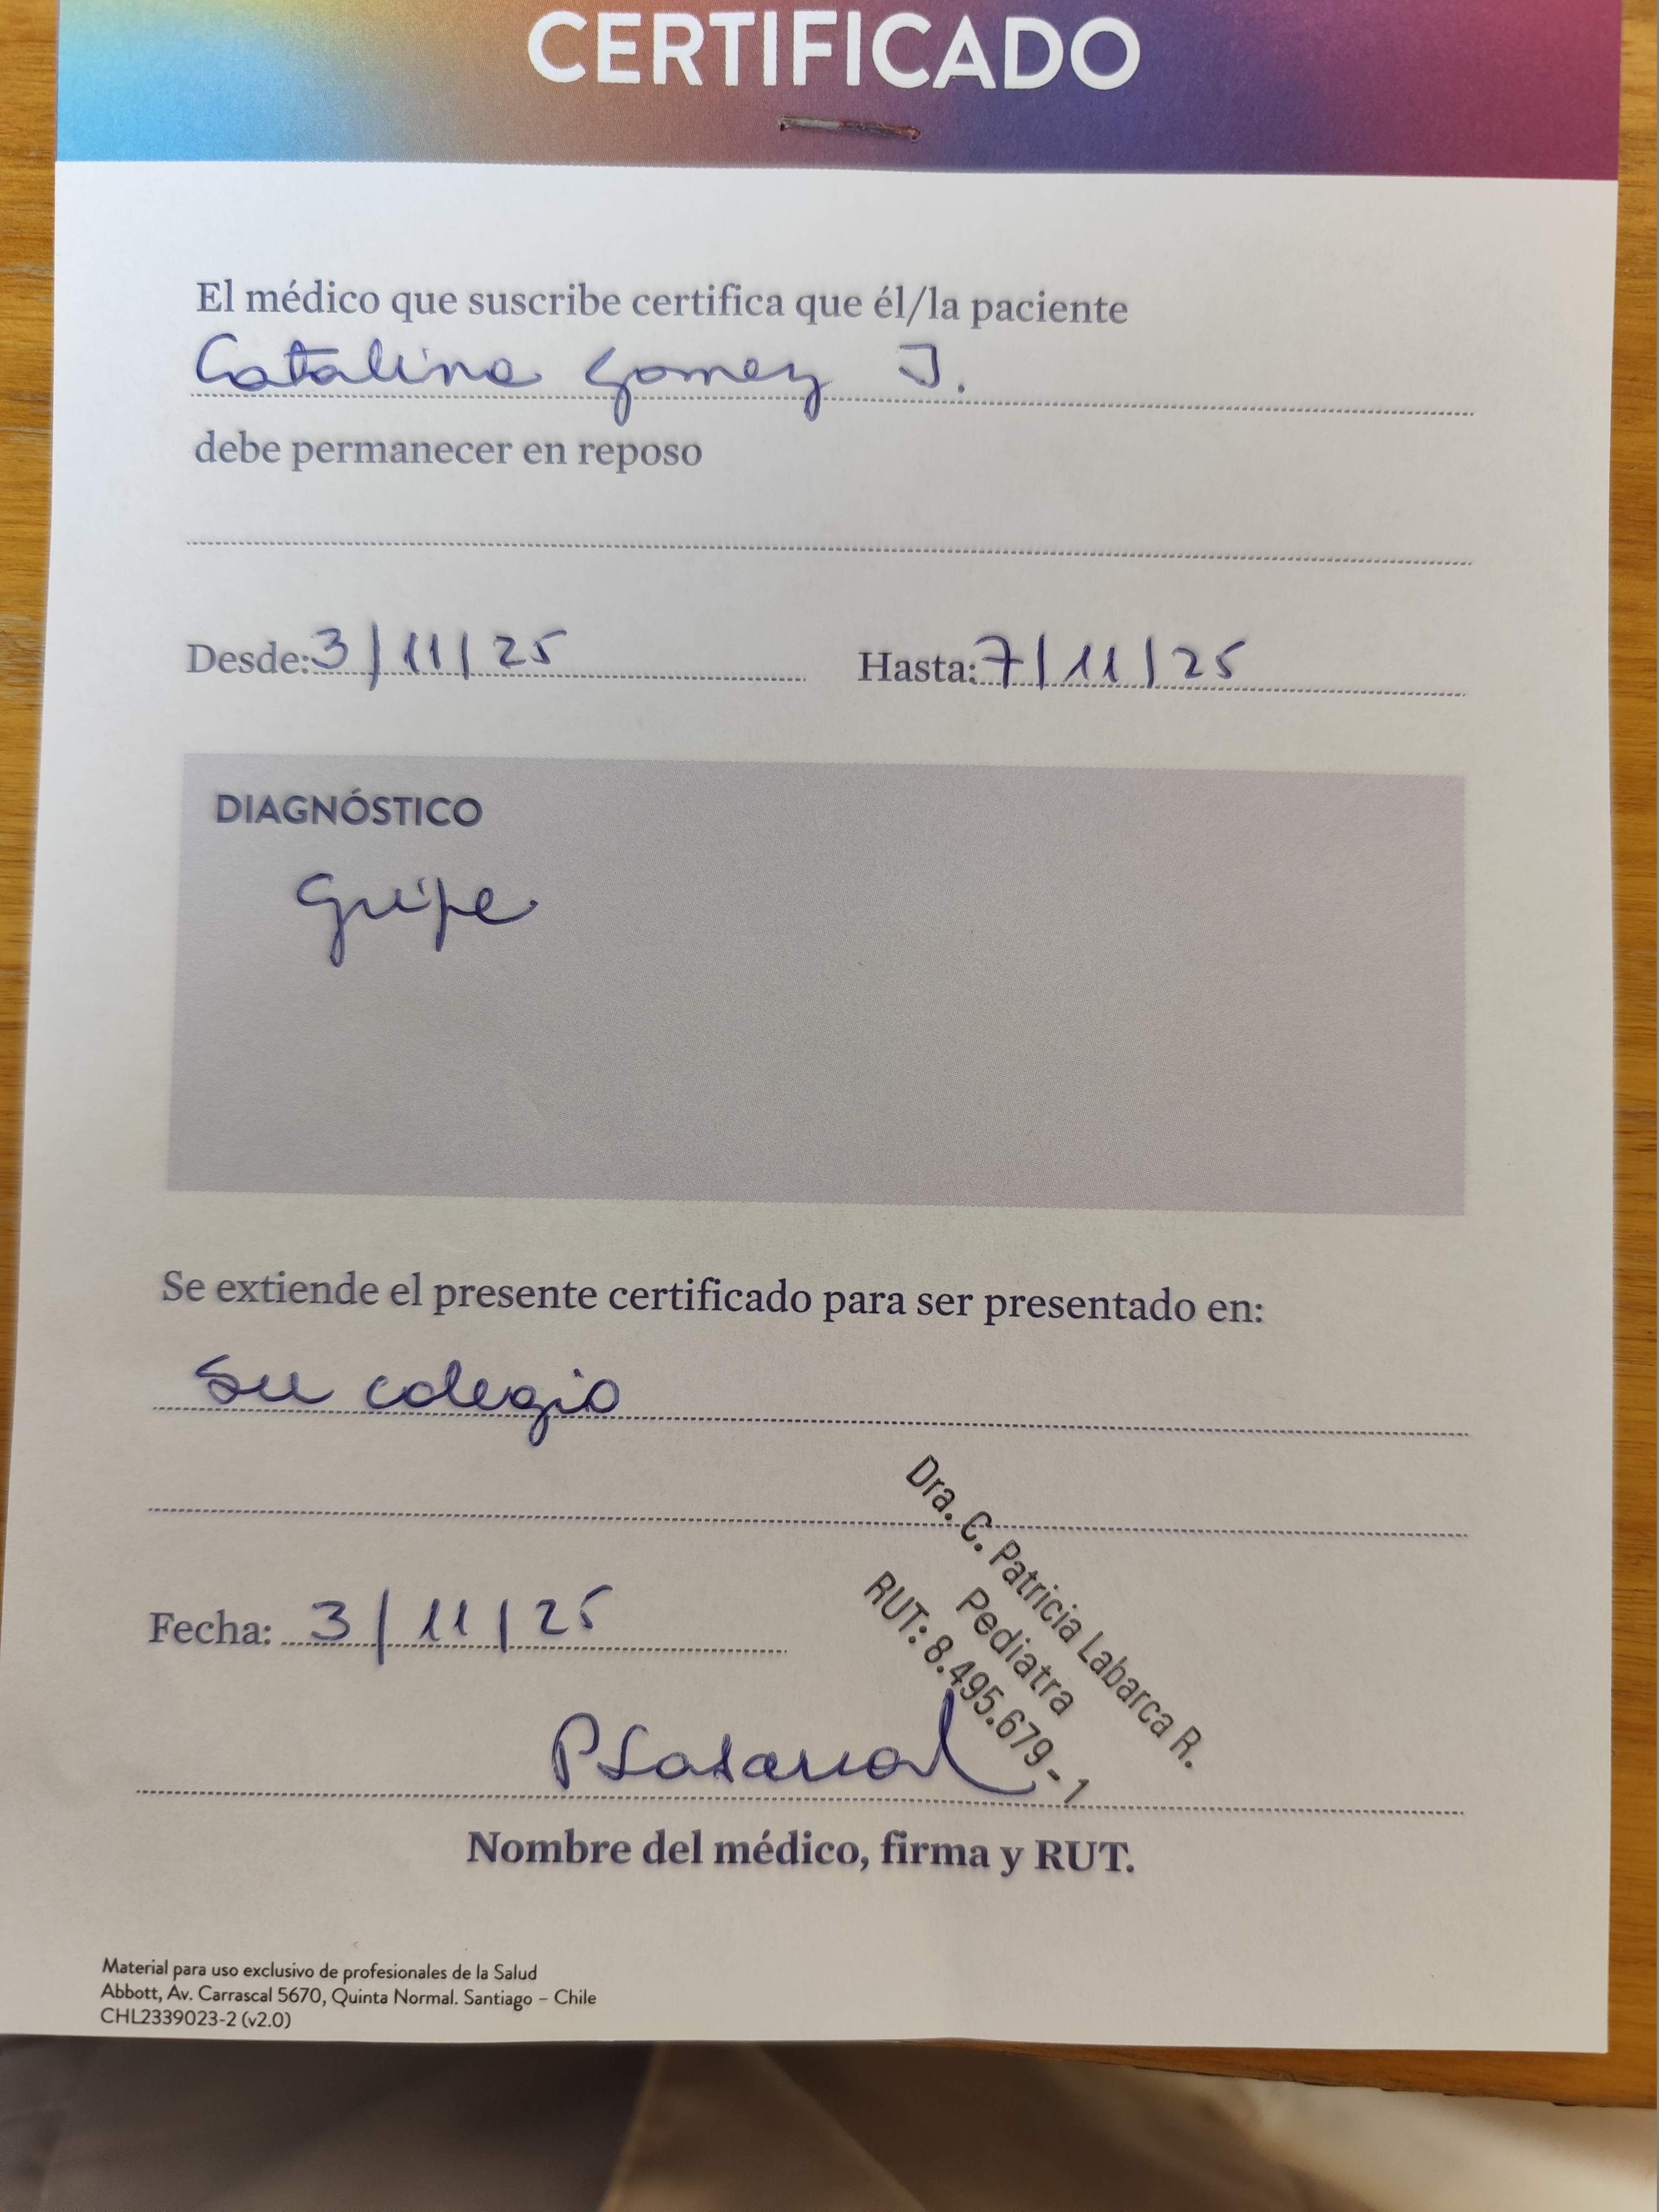 CERTIFICADO
El médico que suscribe certifica que él/la paciente
Catalina Gomez J.
debe permanecer en reposo
Desde: 3/11/25 Hasta: 7/11/25
DIAGNÓSTICO
Gripe
Se extiende el presente certificado para ser presentado en:
Su colegio
Dra. C. Patricia Labarca R.
Pediatra
RUT: 8.495.679-1
Fecha: 3/11/25
Nombre del médico, firma y RUT.
Material para uso exclusivo de profesionales de la Salud
Abbott, Av. Carrascal 5670, Quinta Normal. Santiago – Chile
CHL2339023-2 (v2.0)